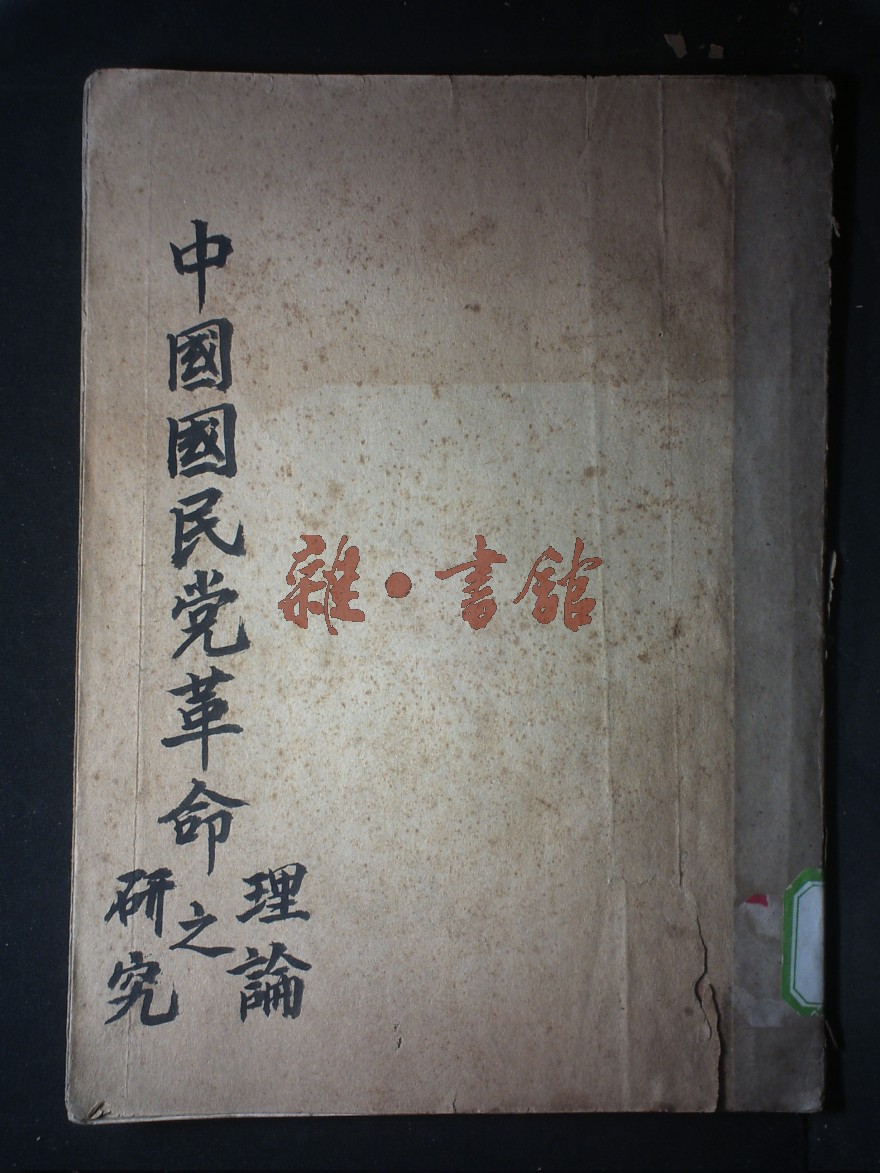 中國國民党革命
理論
之
研究
雜·書館